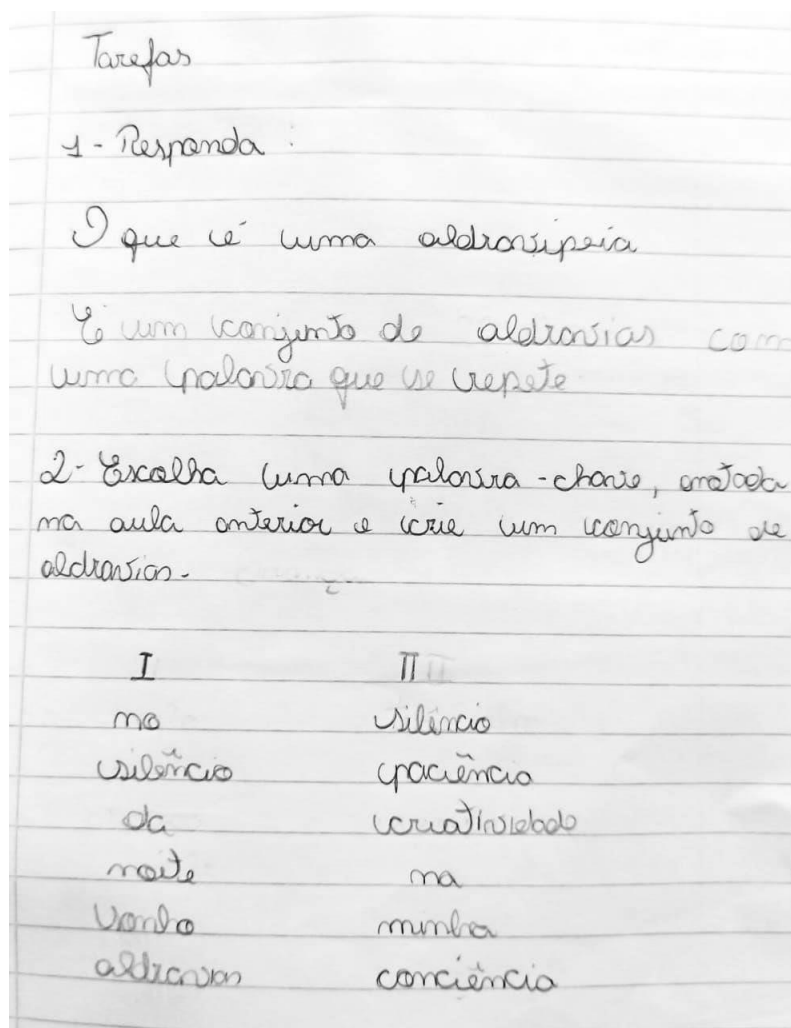 Tarefas
1- Responda:
O que é uma aldravipeia
É um conjunto de aldravias com
uma palavra que se repete
2- Escolha uma palavra-chave, anotada
na aula anterior e crie um conjunto de
aldravias.
I II
no silêncio
silêncio paciência
da criatividade
noite na
sonho minha
aldravias conciência